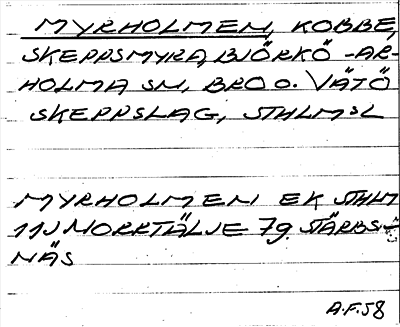 MYRHOLMEN, KOBBE,
SKEPPSMYRA, BJÖRKÖ-AR-
HOLMA SN, BRO O. VÄTÖ
SKEPPSLAG, STHLMSL
MYRHOLMEN EK STHLM
11J NORRTÄLJE 7g. STÄRBS-
NÄS
A.F.58